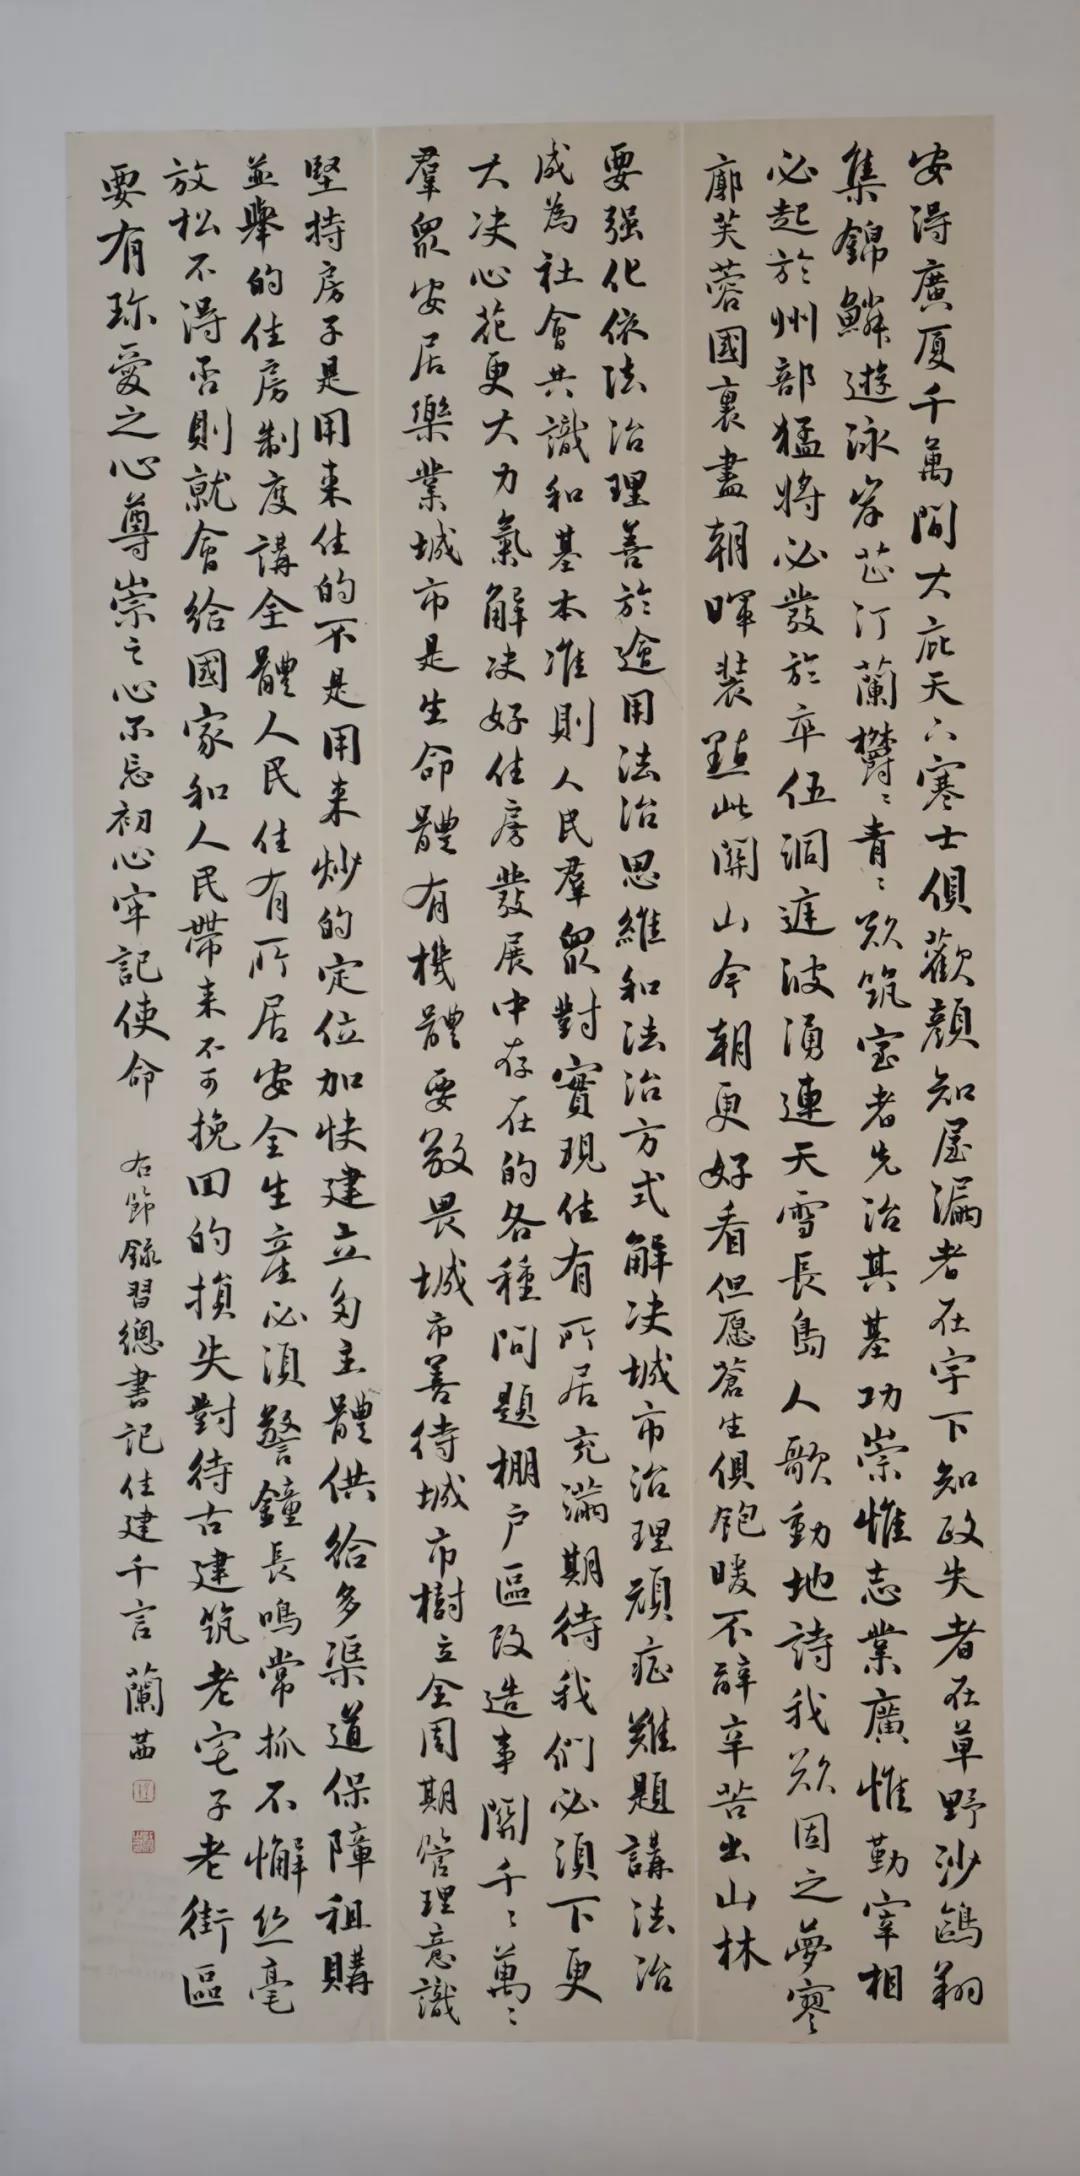 安得廣厦千萬間大庇天下寒士俱歡顏知屋漏者在宇下知政失者在草野沙鷗翔
集錦鱗遊泳岸芷汀蘭欎〻青〻欲筑室者先治其基功崇惟志業廣惟勤宰相
必起於州部猛將必發於卒伍洞庭波涌連天雪長島人歌動地詩我欲因之夢寥
廓芙蓉國裏盡朝暉裝點此關山今朝更好看但愿蒼生俱飽暖不辭辛苦出山林
要强化依法治理善於運用法治思維和法治方式解决城市治理頑症難題講法治
成為社會共識和基本准則人民羣眾對實現住有所居充滿期待我們必須下更
大决心花更大力氣解决好住房發展中存在的各種問題棚户區改造事關千〻萬〻
羣眾安居樂業城市是生命體有機體要敬畏城市善待城市樹立全周期管理意識
堅持房子是用来住的不是用来炒的定位加快建立多主體供給多渠道保障租購
並舉的住房制度講全體人民住有所居安全生産必須警鐘長鳴常抓不懈丝毫
放松不得否則就會給國家和人民帶来不可挽回的損失對待古建筑老宅子老街區
要有珎愛之心尊崇之心不忘初心牢記使命
右節録習總書記住建千言 蘭茜